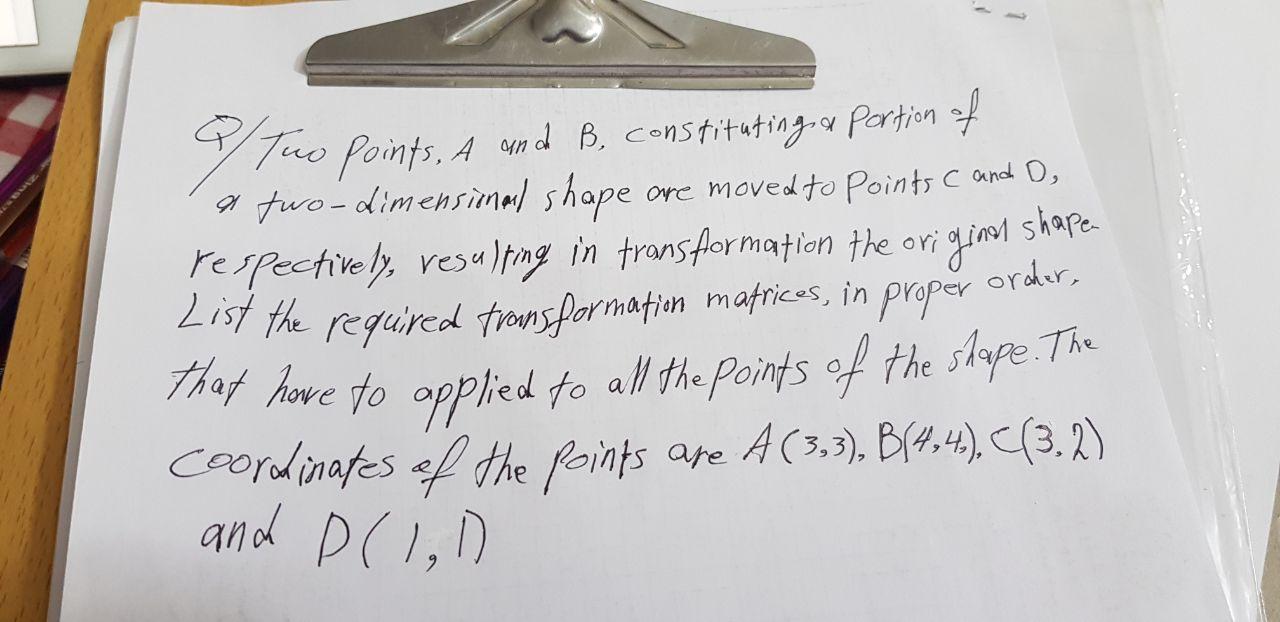 Q/ Two Points, A and B, constituting a Portion of
a two-dimensional shape are moved to Points C and D,
respectively, resulting in transformation the original shape.
List the required transformation matrices, in proper order,
that have to applied to all the points of the shape. The
coordinates of the points are A(3,3), B(4,4), C(3,2)
and D(1,1)